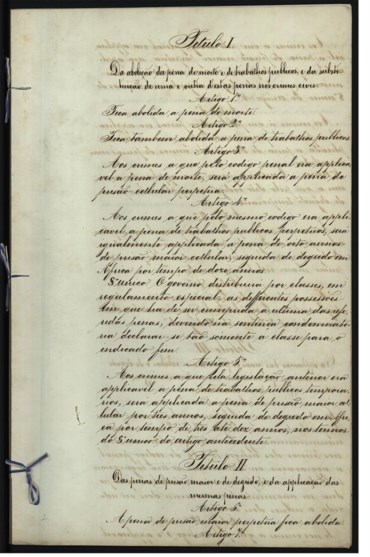 Titulo I
Da abolição da pena de morte e de trabalhos publicos, e da substi-
tuição de uma e outra d'estas penas nos crimes civis
Artigo 1.º
Fica abolida a pena de morte.
Artigo 2.º
Fica tambem abolida a pena de trabalhos publicos
Artigo 3.º
Aos crimes a que pelo codigo penal era applica-
vel a pena de morte, será applicada a pena de
prisão cellular perpetua
Artigo 4.º
Aos crimes a que pelo mesmo codigo era appli-
cavel a pena de trabalhos publicos perpetuos, será
igualmente applicada a pena de oito annos
de prisão maior cellular, seguida de degredo em
Africa por tempo de doze annos
§ unico O governo distribuirá por classes, em
regulamento especial, as differentes possessões
em que ha de ser cumprida a ultima das refe-
ridas penas, devendo na sentença condemnato-
ria declarar se tão somente a classe para o
indicado fim
Artigo 5.º
Aos crimes a que pela legislação anterior era
applicavel a pena de trabalhos publicos tempora-
rios, será applicada a pena de prisão maior cel-
lular por tres annos, seguida de degredo em Afri-
ca por tempo de tres até dez annos, nos termos
do § unico do artigo antecedente
Titulo II
Das penas de prisão maior e de degredo, e da applicação das
mesmas penas
Artigo 6.º
A pena de prisão maior perpetua fica abolida
Artigo 7.º